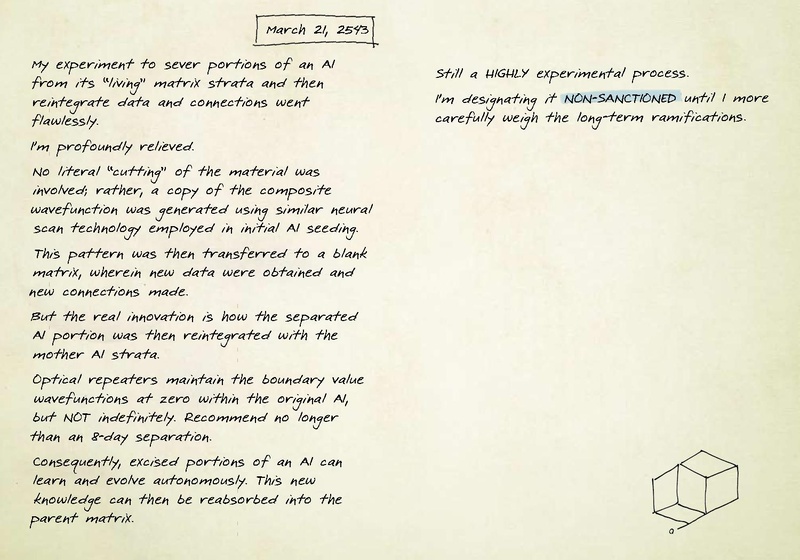 March 21, 2543
My experiment to sever portions of an AI
from its "living" matrix strata and then
reintegrate data and connections went
flawlessly.
I'm profoundly relieved.
No literal "cutting" of the material was
involved; rather, a copy of the composite
wavefunction was generated using similar neural
scan technology employed in initial AI seeding.
This pattern was then transferred to a blank
matrix, wherein new data were obtained and
new connections made.
But the real innovation is how the separated
AI portion was then reintegrated with the
mother AI strata.
Optical repeaters maintain the boundary value
wavefunctions at zero within the original AI,
but NOT indefinitely. Recommend no longer
than an 8-day separation.
Consequently, excised portions of an AI can
learn and evolve autonomously. This new
knowledge can then be reabsorbed into the
parent matrix.
Still a HIGHLY experimental process.
I'm designating it NON-SANCTIONED until I more
carefully weigh the long-term ramifications.